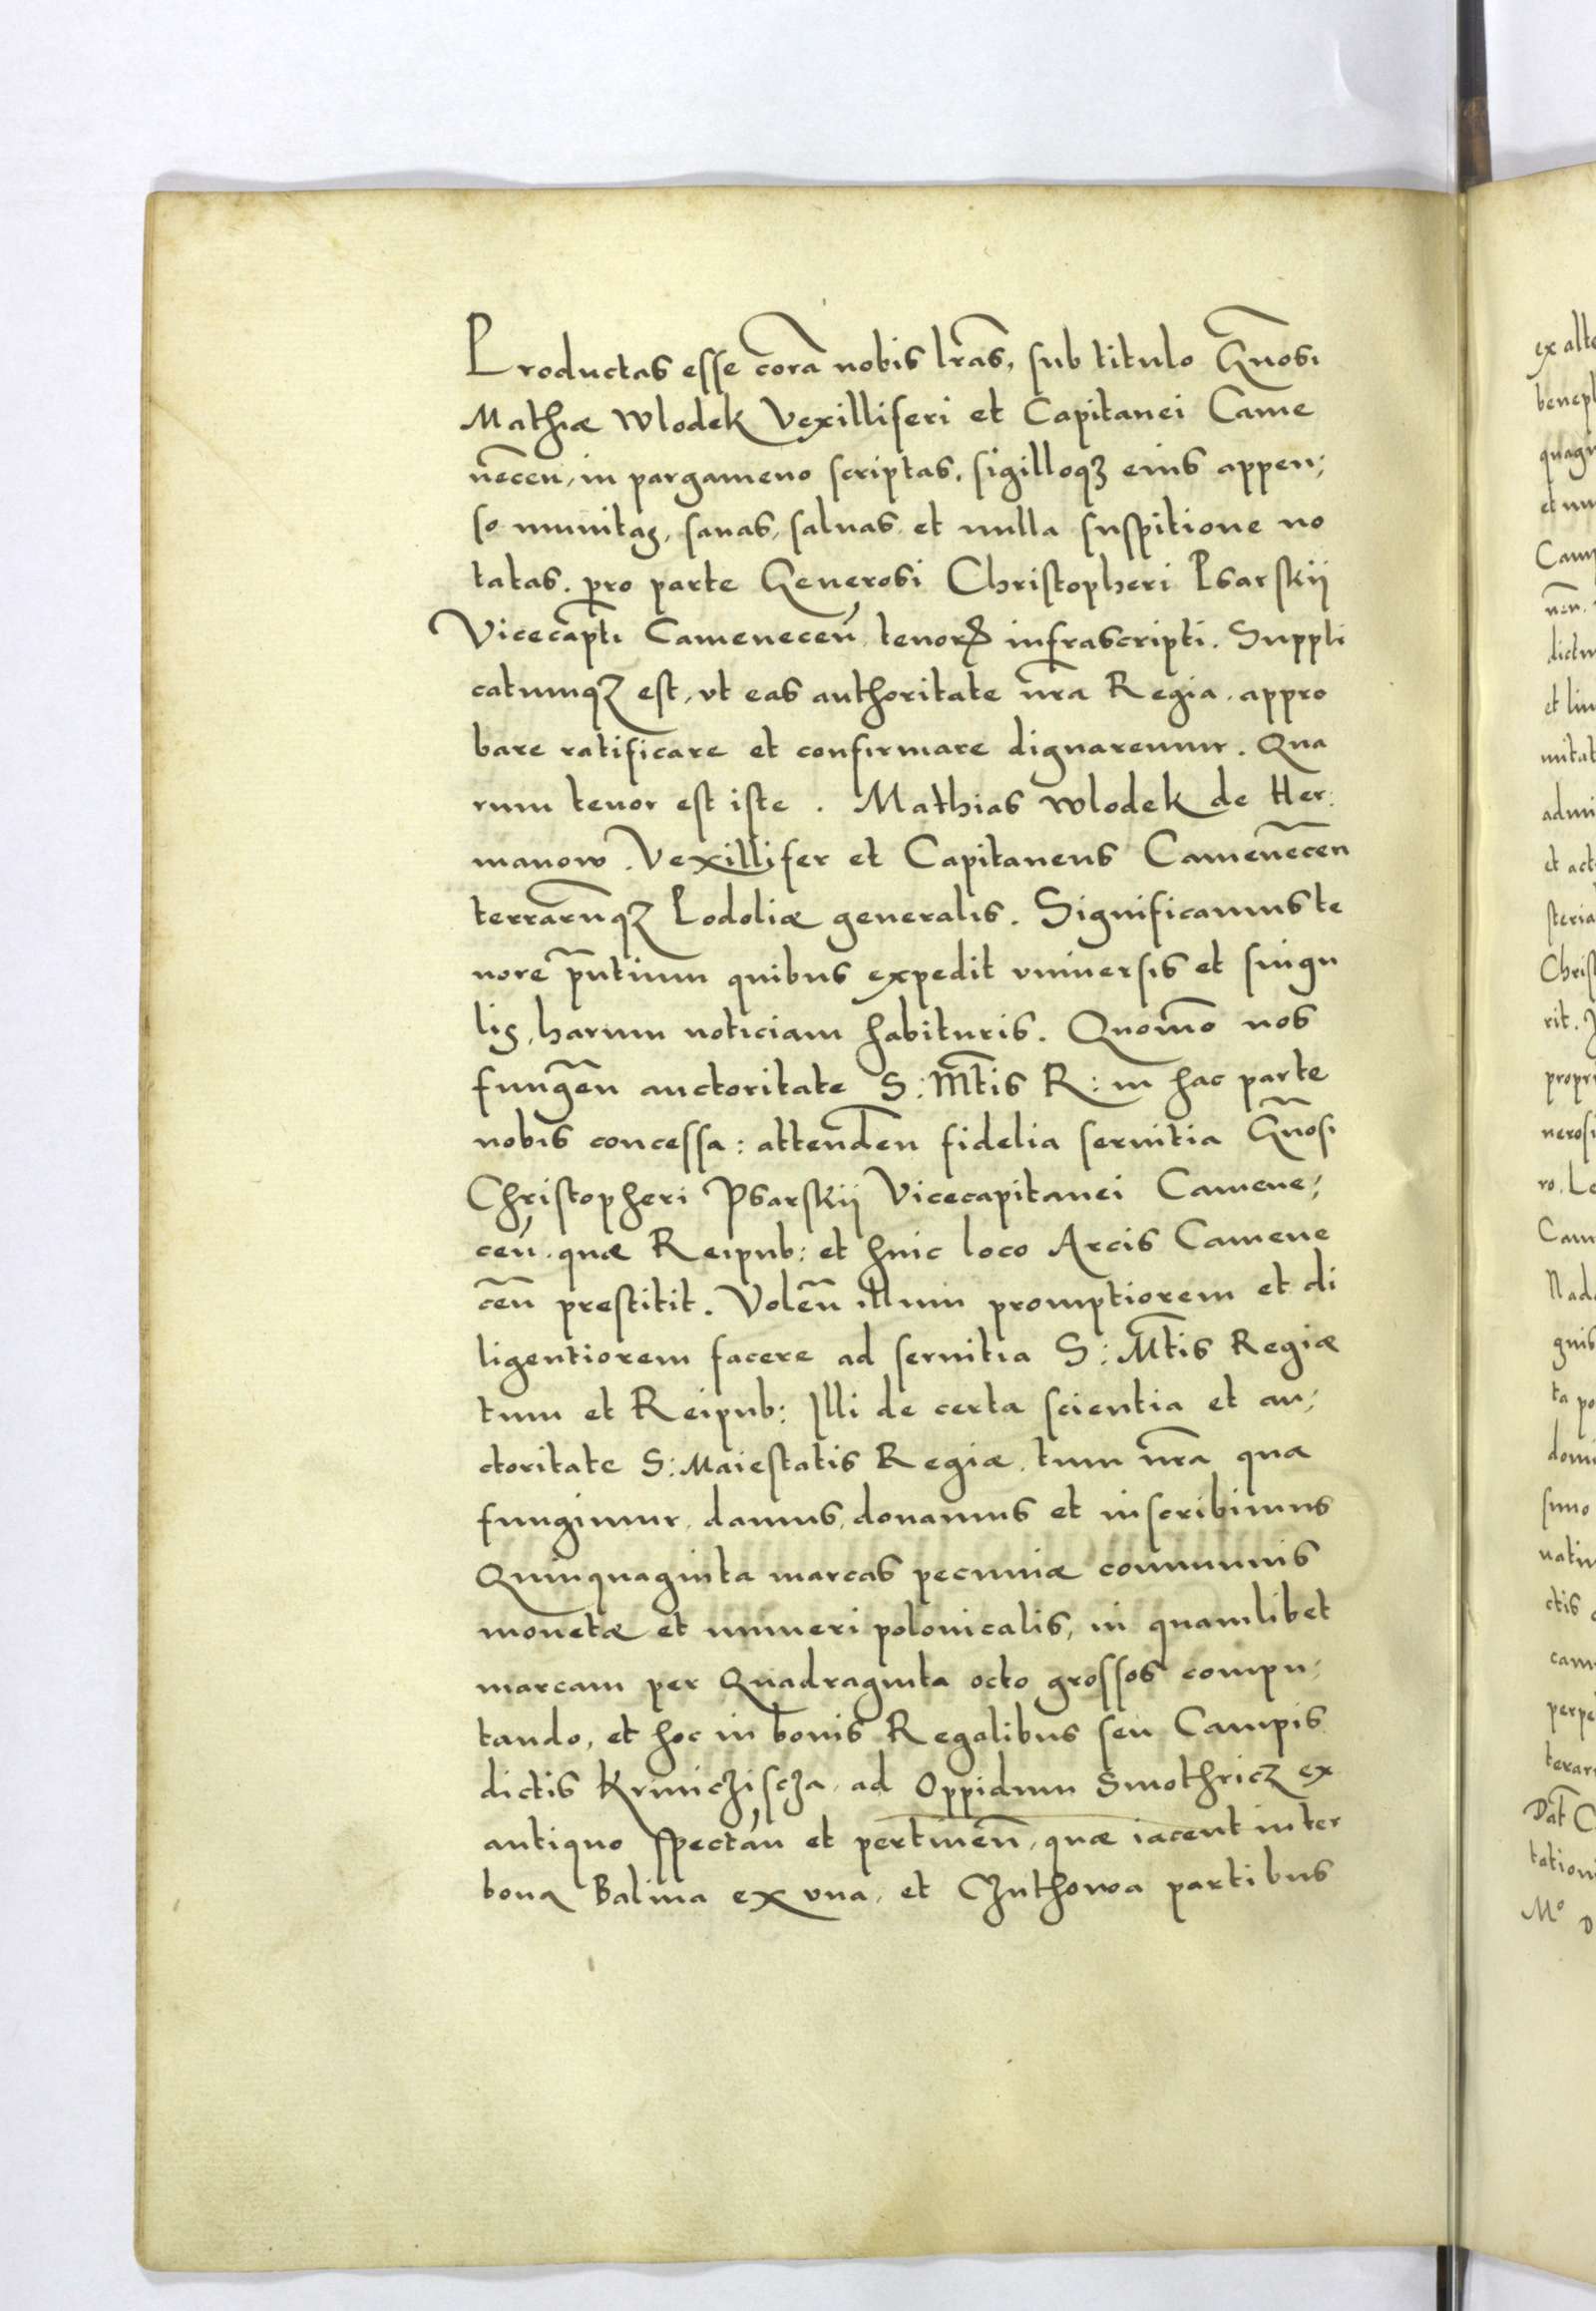 Productas esse corā nobis lr̄as, sub titulo Gn̄osi
Mathiæ Wlodek Vexilliferi et Capitanei Came
nēcen, in pargameno scriptas, sigilloqꝫ eius appen;
so munitas, sanas, saluas et nulla suspitione no
tatas. pro parte Generosi Christopheri Psarskii
Vicecap̄ti Camenecen̄ tenorꝭ infrascripti. Suppli
catumqꝫ est, vt eas authoritate nr̄a Regia, appro
bare ratificare et confirmare dignaremur. Qua
rum tenor est iste. Mathias Wlodek de Her:
manow. Vexillifer et Capitaneus Camenēcen
terrarūqꝫ Podoliæ generalis. Significamus te
nore pn̄tium quibus expedit vniuersis et singu
lis, harum noticiam habituris. Quom̄o nos
fungen̄ auctoritate S: Mt̄is R: in hac parte
nobis concessa: attenden̄ fidelia seruitia Gn̄osi
Christopheri Psarskii Vicecapitanei Camene;
cen̄. quæ Reipub: et huic loco Arcis Camene
cen̄ prestitit. Volen̄ illum promptiorem et di
ligentiorem facere ad seruitia S: Mt̄is Regiæ
tum et Reipub: Illi de certa scientia et au;
ctoritate S: Maiestatis Regiæ, tum nr̄a qua
fungimur, damus, donamus et inscribimus
Quinquaginta marcas pecuniæ communis
monetæ et numeri polonicalis, in quamlibet
marcam per Quadraginta octo grossos compu;
tando, et hoc in bonis Regalibus seu Campis
dictis Krinicziscza, ad Oppidum Smothricz ex
antiquo spectan̄ et pertinen̄, quæ iacent inter
bona Balina ex vna, et Czuthowa partibus